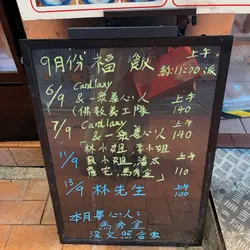 9月份福飯
上午
約11:00派
6/9 Cardlaxy
&一眾善心人 上午
(佛教義工隊) 140
7/9 Cardlaxy 上午
&一眾善心人 140
林小姐, 李小姐
11/9 小姐, 潘太 上午
馬秀金 110
13/9 林先生 上午
100
本月善心人:
馬秀金